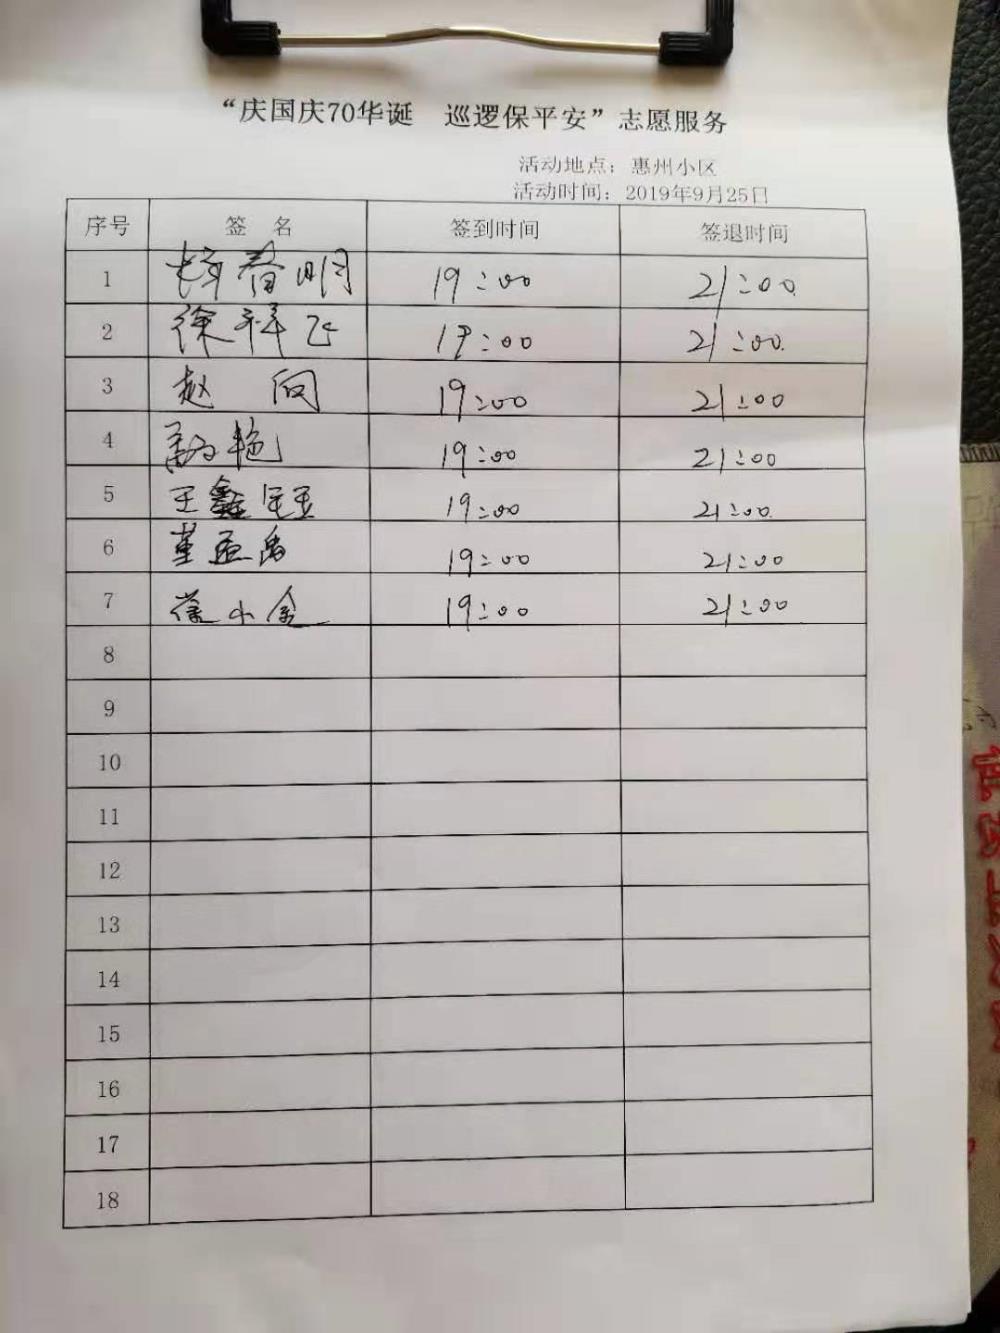 “庆国庆70华诞　巡逻保平安”志愿服务
活动地点：惠州小区
活动时间：2019年9月25日
序号 签 名 签到时间 签退时间
1 春明 19:00 21:00
2 徐祥飞 19:00 21:00
3 赵 向 19:00 21:00
4 艳 19:00 21:00
5 王鑫 19:00 21:00
6 董孟禹 19:00 21:00
7 徐小金 19:00 21:00
8
9
10
11
12
13
14
15
16
17
18